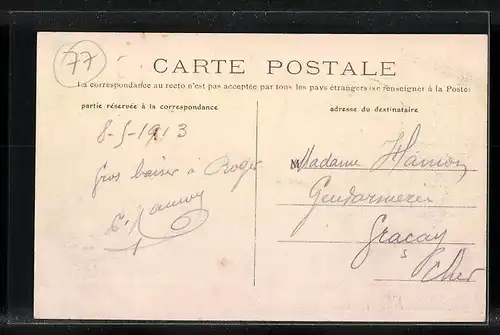 77
CARTE POSTALE
La correspondance au recto n'est pas acceptée par tous les pays étrangers (se renseigner à la Poste)
partie réservée à la correspondance
adresse du destinataire
8-5-1913
Gros baiser à Roger
Madame Hamon
Gendarmerie
Graçay
Cher